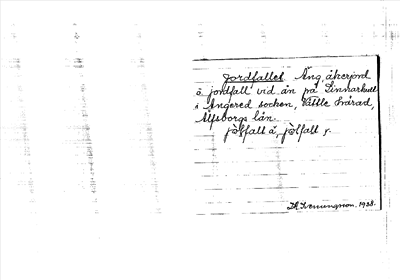 Jordfallet. Äng, åkerjord
å jordfall vid ån på Linnarhult
i Angered socken, Vättle härad,
Älfsborgs län.
jòlfall å, jòlfall,
Henningsson. 1928.